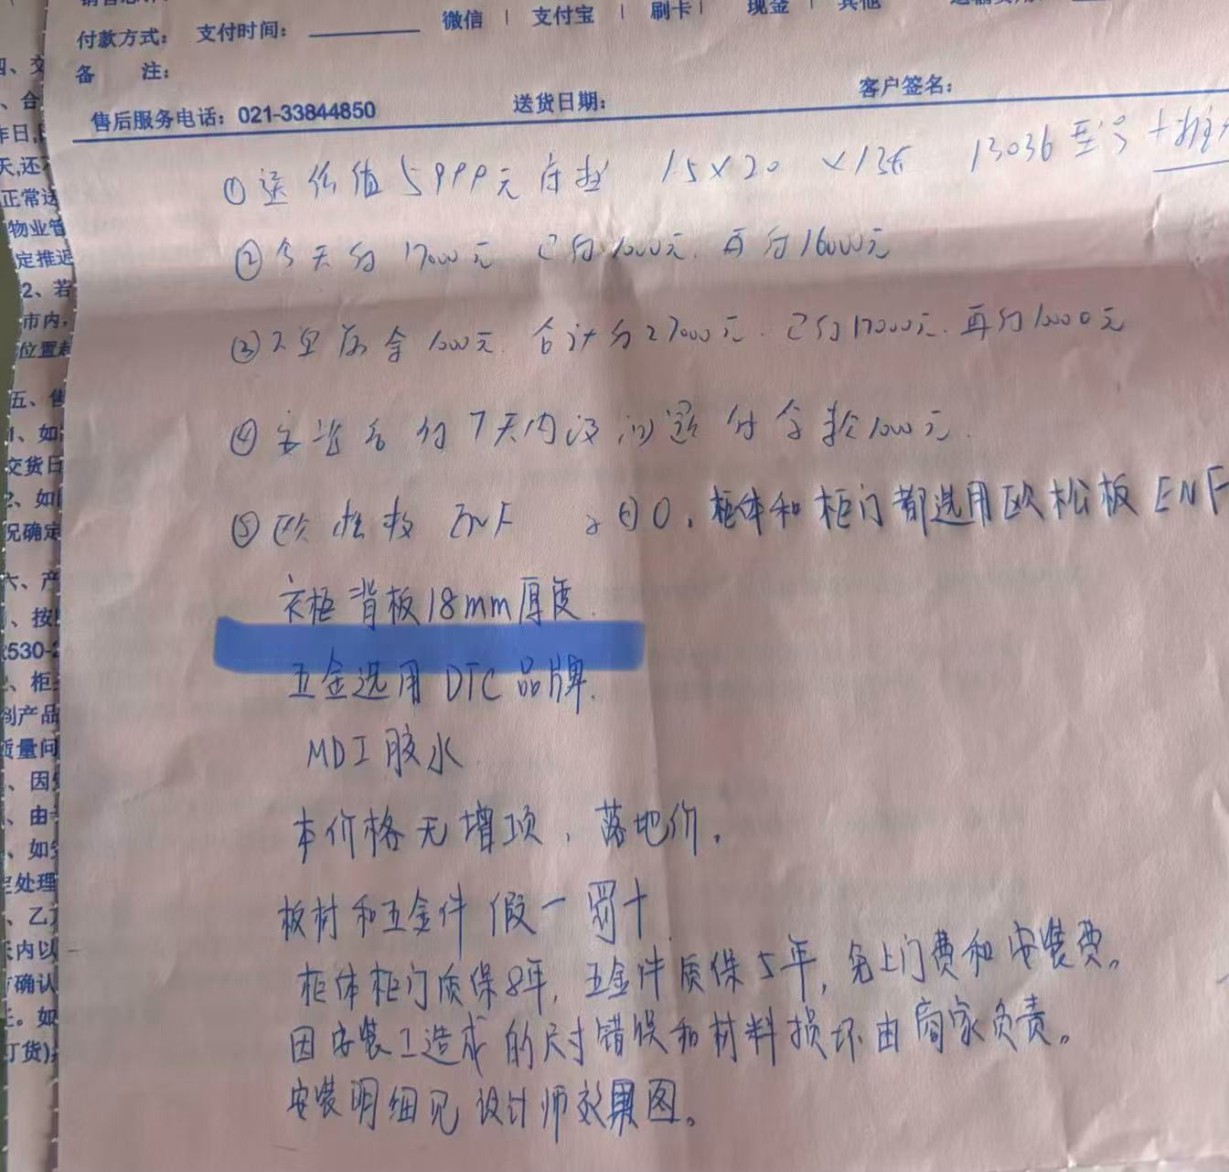 付款方式： 支付时间： 微信 | 支付宝 | 刷卡 | 现金 | 其他
备 注：
售后服务电话：021-33844850 送货日期： 客户签名：
①送价值5999元床垫 1.5×20 13036型号
②今天付17000元 已付1000元，再付16000元
合计付27000元．已付17000元．再付10000元
付7天内没问题付余款1000元．
⑤欧松板ENF 柜体和柜门都选用欧松板ENF
衣柜背板18mm厚度．
五金选用DTC品牌．
MDI胶水
本价格无增项，落地价。
板材和五金件假一罚十
柜体柜门质保8年，五金件质保5年，免上门费和安装费。
因安装工造成的尺寸错误和材料损坏由商家负责。
安装明细见设计师效果图。
四、交
、合
天,还
正常送
物业管
定推迟
2、若
市内，
五、售
1、如
交货日
2、如
况确定
六、产
、按
、柜
到产品
质量问
、因
、由
、如
定处理
、乙
天内以
确认
。如
订货)